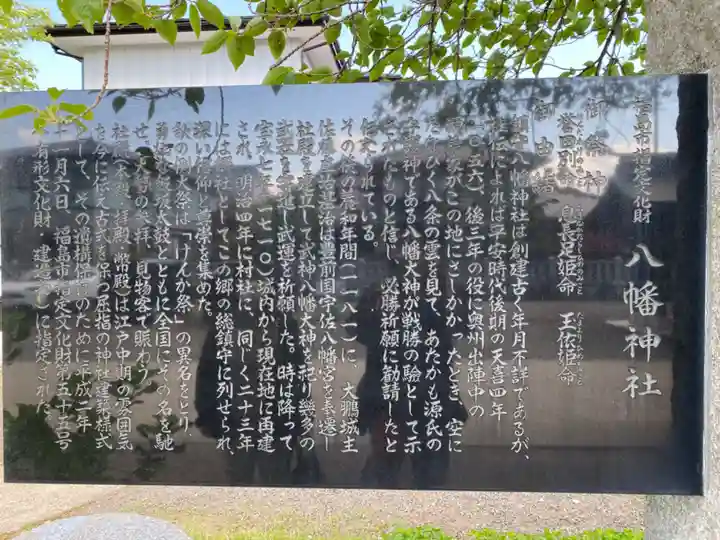 福島市指定文化財 八幡神社
御祭神
誉田別命 息長足姫命 玉依姫命
御由緒
八幡神社は創建古く年月不詳であるが、
社伝によれば平安時代後期の天喜四年
(一〇五六)、後三年の役に奥州出陣中の
源義家がこの地にさしかかったとき、空に
たなびく八条の雲を見て、あたかも源氏の
守護神である八幡大神が戦勝の験として示
されたものと信じ、必勝祈願に勧請したと
伝えられている。
その後の養和年間(一一八一)に、大鵬城主
佐藤元治は豊前国宇佐八幡宮を奉遷し
社殿を造立して武神八幡大神を祀り幾多の
武士を奉進し武運を祈願した。時は降って
宝永七年(一七一〇)城内から現在地に再建
され、明治四年に村社に、同じく二十三年
には郷社としてこの郷の総鎮守に列せられ、
深い信仰と尊崇を集めた。
秋の例大祭は「けんか祭」の異名をとり、
勇壮な飯坂太鼓とともに全国にその名を馳
せ、大勢の参拝、見物客で賑わう。
社殿(本殿、拝殿、幣殿)は江戸中期の雰囲気
を今に伝え古式を保つ屈指の神社建築様式
として、その遺構保存のために平成二年
十一月六日、福島市指定文化財第五十五号
(有形文化財・建造物)に指定された。